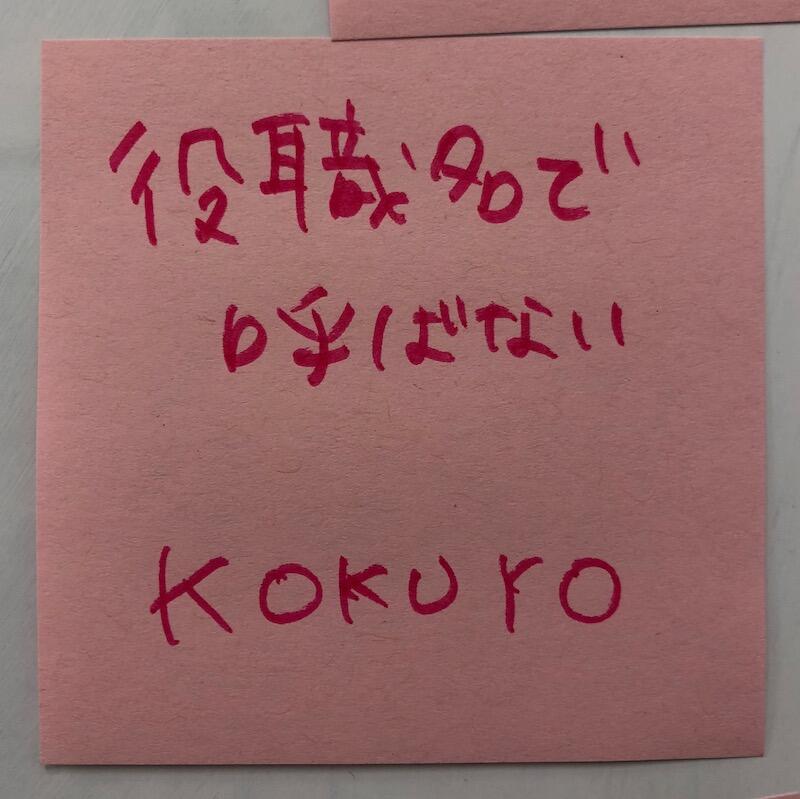 役職名で
呼ばない
KOKURO